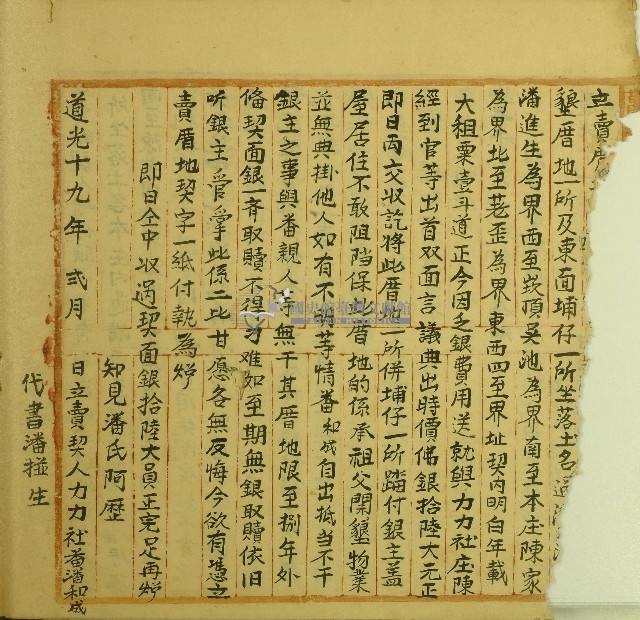 立賣厝
墾厝地一所及東面埔仔一所坐落土名
潘進生為界西至崁頂吳池為界南至本庄陳家
為界北至荖歪為界東西四至界址契內明白年載
大租粟壹斗道正今因乏銀費用送就與力力社庄陳
經到官等出首双面言議典出時價佛銀拾陸大元正
即日両交收訖將此厝地一所併埔仔一所踏付銀主蓋
屋居住不敢阻挡保此厝地的係承祖父開墾物業
並無典掛他人如有不明等情番和成自出抵当不干
銀主之事與番親人等無干其厝地限至捌年外
俻契面銀一斉取贖不得刁难如至期無銀取贖依旧
听銀主管掌此係二比甘愿各無反悔今欲有憑立
賣厝地契字一紙付執為炤
即日仝中收過契面銀拾陸大員正完足再炤
知見潘氏阿歷
道光十九年弍月 日立賣契人力力社番潘和成
代書潘
生
國史館臺灣文獻館